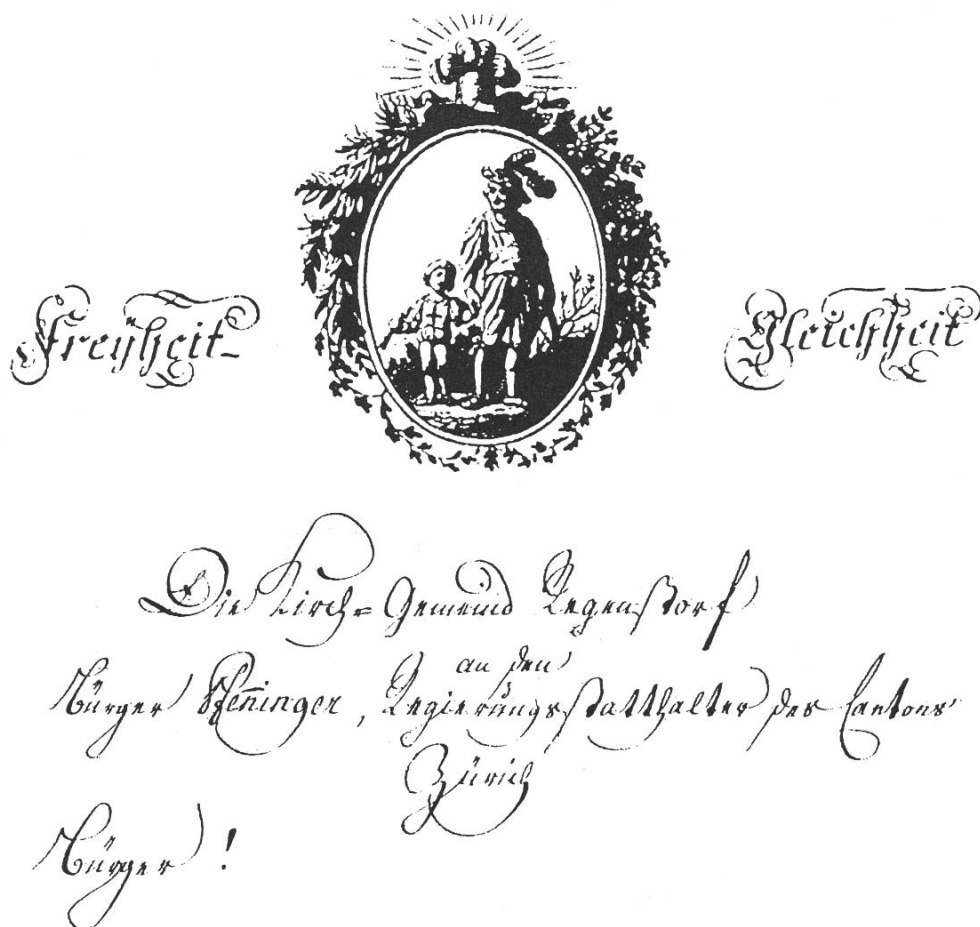 Freÿheit_ Gleichheit
Die Kirch=Gemeind Regenstorf
an den
Bürger Pfen̄inger, Regierungsstatthalter des Cantons
Zürich
Bürger !